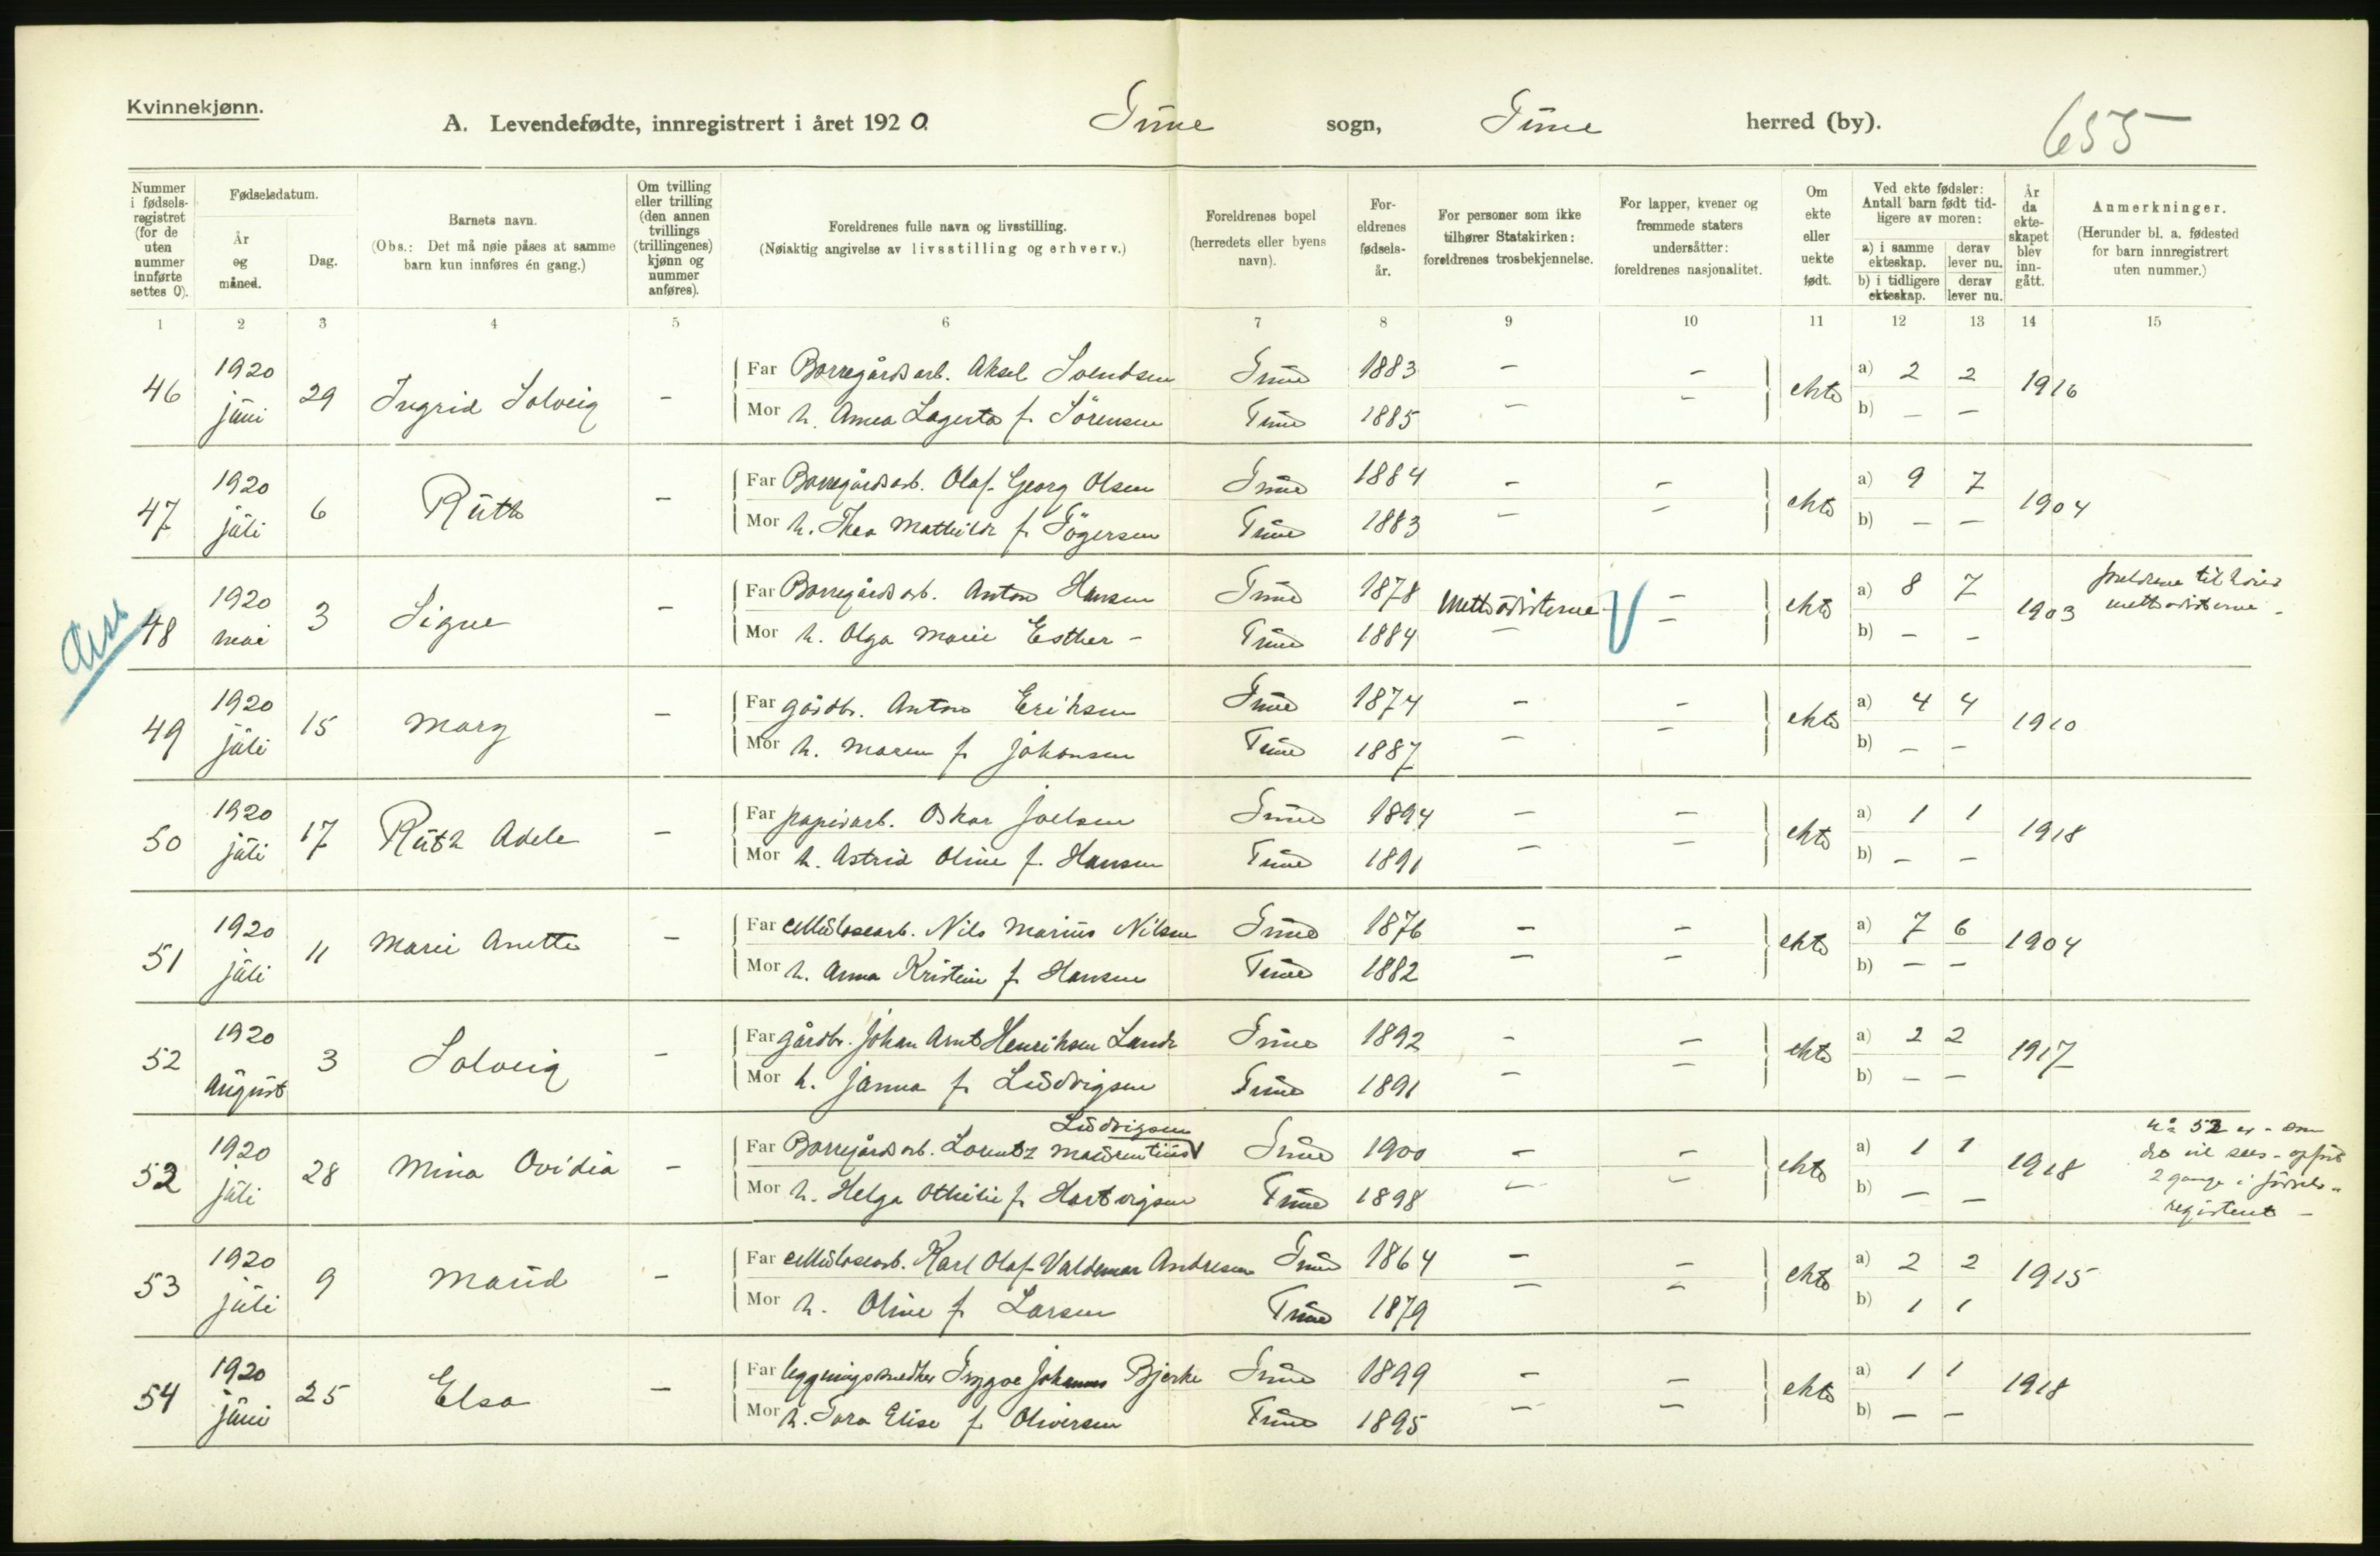 Kvinnekjønn.
A. Levendefødte, innregistrert i året 1920. Tune sogn, Tune herred (by). 655
Nummer i fødselsregistret (for de uten nummer innførte settes 0).
Fødselsdatum.
År og måned.
Dag.
Barnets navn.
(Obs.: Det må nøie påses at samme barn kun innføres én gang.)
Om tvilling eller trilling (den annen tvillings (trillingenes) kjønn og nummer anføres).
Foreldrenes fulle navn og livsstilling.
(Nøiaktig angivelse av livsstilling og erhverv.)
Foreldrenes bopel (herredets eller byens navn).
Foreldrenes fødselsår.
For personer som ikke tilhører Statskirken: foreldrenes trosbekjennelse.
For lapper, kvener og fremmede staters undersåtter: foreldrenes nasjonalitet.
Om ekte eller uekte født.
Ved ekte fødsler: Antall barn født tidligere av moren:
a) i samme ekteskap. derav lever nu.
b) i tidligere ekteskap. derav lever nu.
År da ekteskapet blev inngått.
Anmerkninger.
(Herunder bl. a. fødested for barn innregistrert uten nummer.)
1 2 3 4 5 6 7 8 9 10 11 12 13 14 15
46 1920 juni 29 Ingrid Solveig - Far Borregårdsarb. Aksel Svendsen Tune 1883 - - ekte a) 2 2 1916
Mor h. Anna Lagerta f. Sörensen Tune 1885 - - b) - -
47 1920 juli 6 Ruth - Far Borregårdsarb. Olaf Georg Olsen Tune 1884 - - ekte a) 9 7 1904
Mor h. Thea Mathilde f. Tögersen Tune 1883 - - b) - -
48 1920 mai 3 Signe - Far Borregårdsarb. Anton Hansen Tune 1878 Methodisterne - ekte a) 8 7 1903 foreldrene tilhörer methodisterne -
Mor h. Olga Marie Esther - Tune 1884 - - b) - -
49 1920 juli 15 Mary - Far gårdbr. Anton Eriksen Tune 1874 - - ekte a) 4 4 1910
Mor h. Maren f. Johansen Tune 1887 - - b) - -
50 1920 juli 17 Ruth Adele - Far papirarb. Oskar Joelsen Tune 1894 - - ekte a) 1 1 1918
Mor h. Astrid Oline f. Hansen Tune 1891 - - b) - -
51 1920 juli 11 Marie Anette - Far cellulosearb. Nils Marius Nilsen Tune 1876 - - ekte a) 7 6 1904
Mor h. Anna Kristine f. Hansen Tune 1882 - - b) - -
52 1920 August 3 Solveig - Far gårdbr. Johan Arnt Henriksen Lande Tune 1892 - - ekte a) 2 2 1917
Mor h. Janna f. Ludvigsen Tune 1891 - - b) - -
Ludvigsen
52 1920 juli 28 Mina Ovidia - Far Borregårdsarb. Lorentz Maurentius Tune 1900 - - ekte a) 1 1 1918 No 52 er - som det vil sees - opfört 2 gange i födselsregisteret -
Mor h. Helga Othilie f. Hartvigsen Tune 1898 - - b) - -
53 1920 juli 9 Maud - Far cellulosearb. Karl Olaf Valdemar Andresen Tune 1864 - - ekte a) 2 2 1915
Mor h. Oline f. Larsen Tune 1879 - - b) 1 1
54 1920 juni 25 Elsa - Far Trygve Johannes Bjerke Tune 1899 - - ekte a) 1 1 1918
Mor h. Tora Elise f. Oliversen Tune 1895 - - b) - -